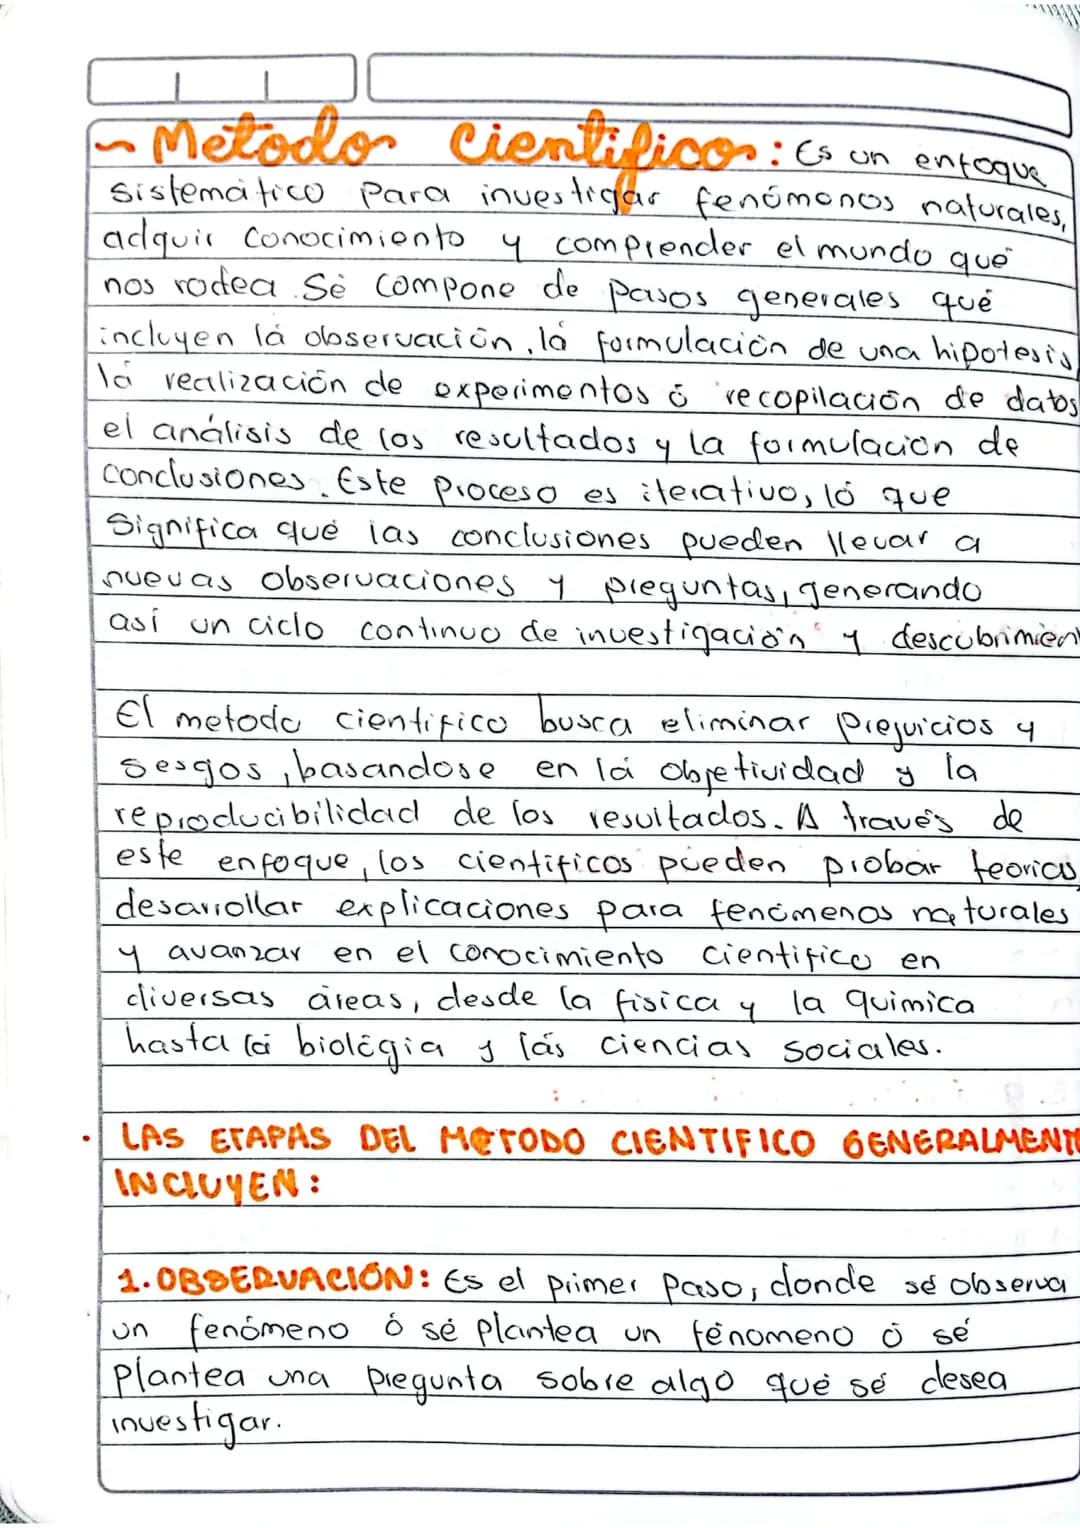 ~ Metodo cientifico: Es un enfoque
sistemático para investigar fenómenos naturales,
adquir conocimiento y comprender el mundo qué
nos rodea. Sé compone de pasos generales qué
incluyen lá observación, lá formulación de una hipotesis,
lá realización de experimentos ó recopilación de datos
el análisis de los resultados y la formulacion de
conclusiones. Este proceso es iterativo, ló que
significa qué las conclusiones pueden llevar a
nuevas observaciones y preguntas, generando
así un ciclo continuo de investigación y descubrimien
El metodo cientifico busca eliminar prejuicios y
sesgos, basandose en lá objetividad y la
reproducibilidad de los resultados. A través de
este enfoque, los cientificos pueden probar teorias,
desarrollar explicaciones para fenómenos naturales
y avanzar en el conocimiento cientifico en
diversas áreas, desde la fisica y la quimica
hasta lá biológia y lás ciencias sociales.
· LAS ETAPAS DEL METODO CIENTIFICO GENERALMENTE
INCLUYEN:
1. OBSERVACIÓN: Es el primer paso, donde sé observa
un fenómeno ó sé plantea un fénomeno ó sé
plantea una pregunta sobre algo qué sé desea
investigar.